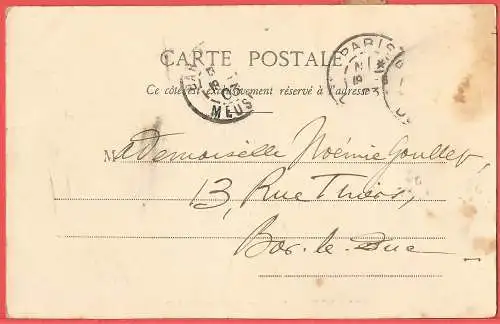 CARTE POSTALE
Ce côté est exclusivement réservé à l'adresse
PARIS
MEUS
Mademoiselle Noémie Goullet,
13, Rue Thiers,
Bar-le-Duc